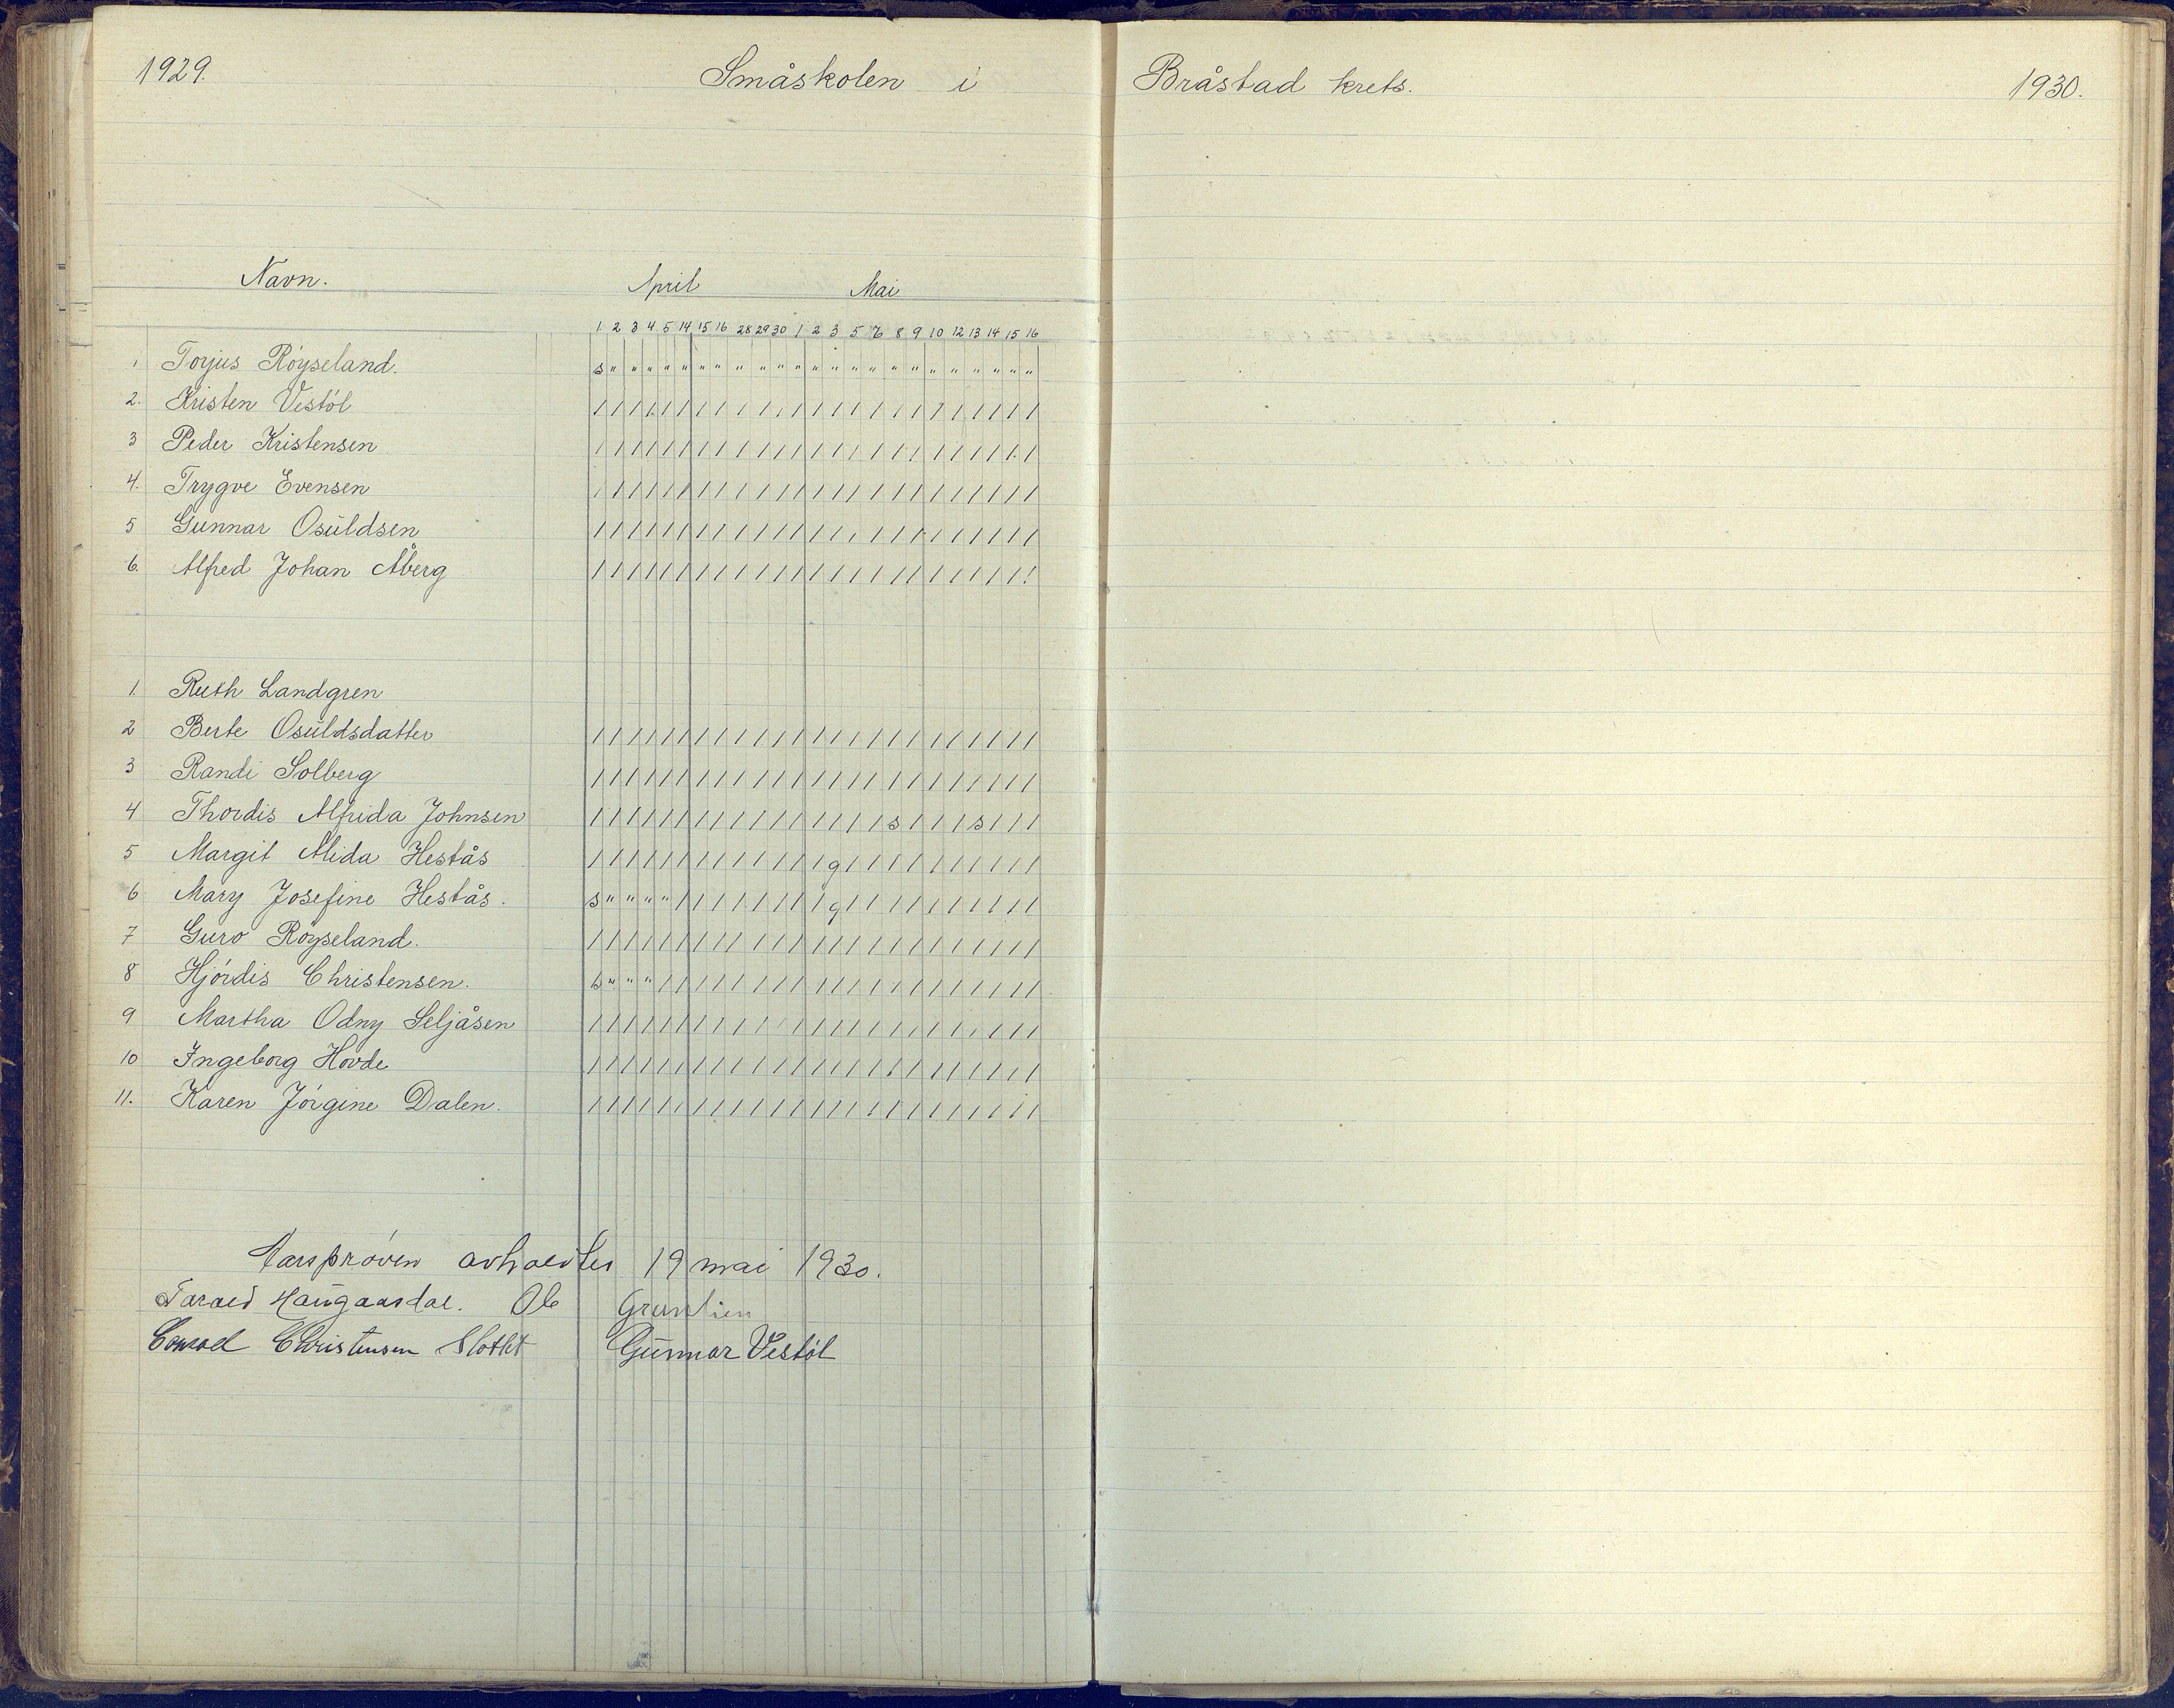 1929. Småskolen i Bråstad krets. 1930.
Navn. April Mai
1 2 3 4 5 14 15 16 28 29 30 1 2 3 5 6 8 9 10 12 13 14 15 16
1 Torjus Röyseland. s " " " " " " " " " " " " " " " " " " " " " " "
2. Kristen Vestöl / / / / / / / / / / / / / / / / / / / / / / / /
3 Peder Kristensen / / / / / / / / / / / / / / / / / / / / / / / /
4. Trygve Evensen / / / / / / / / / / / / / / / / / / / / / / / /
5 Gunnar Osuldsen / / / / / / / / / / / / / / / / / / / / / / / /
6. Alfred Johan Åberg / / / / / / / / / / / / / / / / / / / / / / / /
1. Ruth Landgren
2 Berte Osuldsdatter / / / / / / / / / / / / / / / / / / / / / / / /
3 Randi Solberg / / / / / / / / / / / / / / / / / / / / / / / /
4 Thordis Alfrida Johnsen / / / / / / / / / / / / / / / / s / / / s / / /
5 Margit Alida Hestås / / / / / / / / / / / / / g / / / / / / / / / /
6 Mary Josefine Hestås. s " " " " / / / / / / / / g / / / / / / / / / /
7 Guro Röyseland. / / / / / / / / / / / / / / / / / / / / / / / /
8 Hjördis Christensen. s " " " / / / / / / / / / / / / / / / / / / / /
9 Martha Odny Seljåsen / / / / / / / / / / / / / / / / / / / / / / / /
10 Ingeborg Hovde / / / / / / / / / / / / / / / / / / / / / / / /
11. Karen Jörgine Dalen. / / / / / / / / / / / / / / / / / / / / / / / /
Aarsprøven avholdtes 19 mai 1930.
Tarald Haugaasdal. Ole Grunlien
Conrad Christensen Slottet Gunnar Vestöl